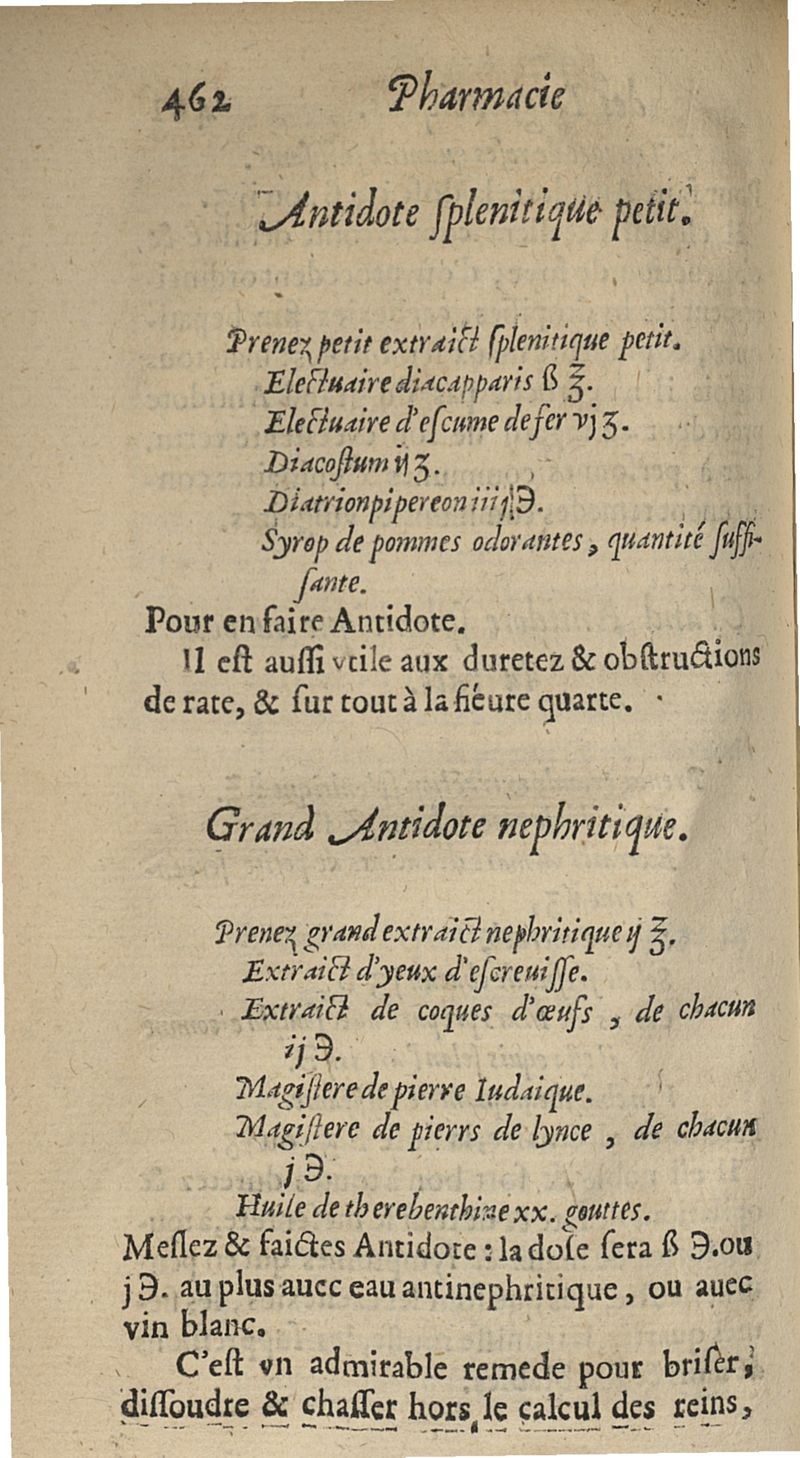 462 Pharmacie
Antidote ſplenitique petit.
Prenez petit extraict ſplenitique petit.
Electuaire diacapparis ß ℥.
Electuaire d'eſcume de fer vj ʒ.
Diacoſtum ij ʒ.
Diatrionpipereon iiij ℈.
Syrop de pommes odorantes, quantité ſuffi-
ſante.
Pour en faire Antidote.
Il eſt auſſi vtile aux duretez & obſtructions
de rate, & ſur tout à la fiéure quarte.
Grand Antidote nephritique.
Prenez grand extraict nephritique ij ℥.
Extraict d'yeux d'eſcreuiſſe.
Extraict de coques d'œufs, de chacun
ij ℈.
Magiſtere de pierre Iudaique.
Magiſtere de pierrs de lynce, de chacun
j ℈.
Huile de therebenthine xx. gouttes.
Meſlez & faictes Antidote : la doſe ſera ß ℈. ou
j ℈. au plus auec eau antinephritique, ou auec
vin blanc.
C'eſt vn admirable remede pour briſer,
diſſoudre & chaſſer hors le calcul des reins,